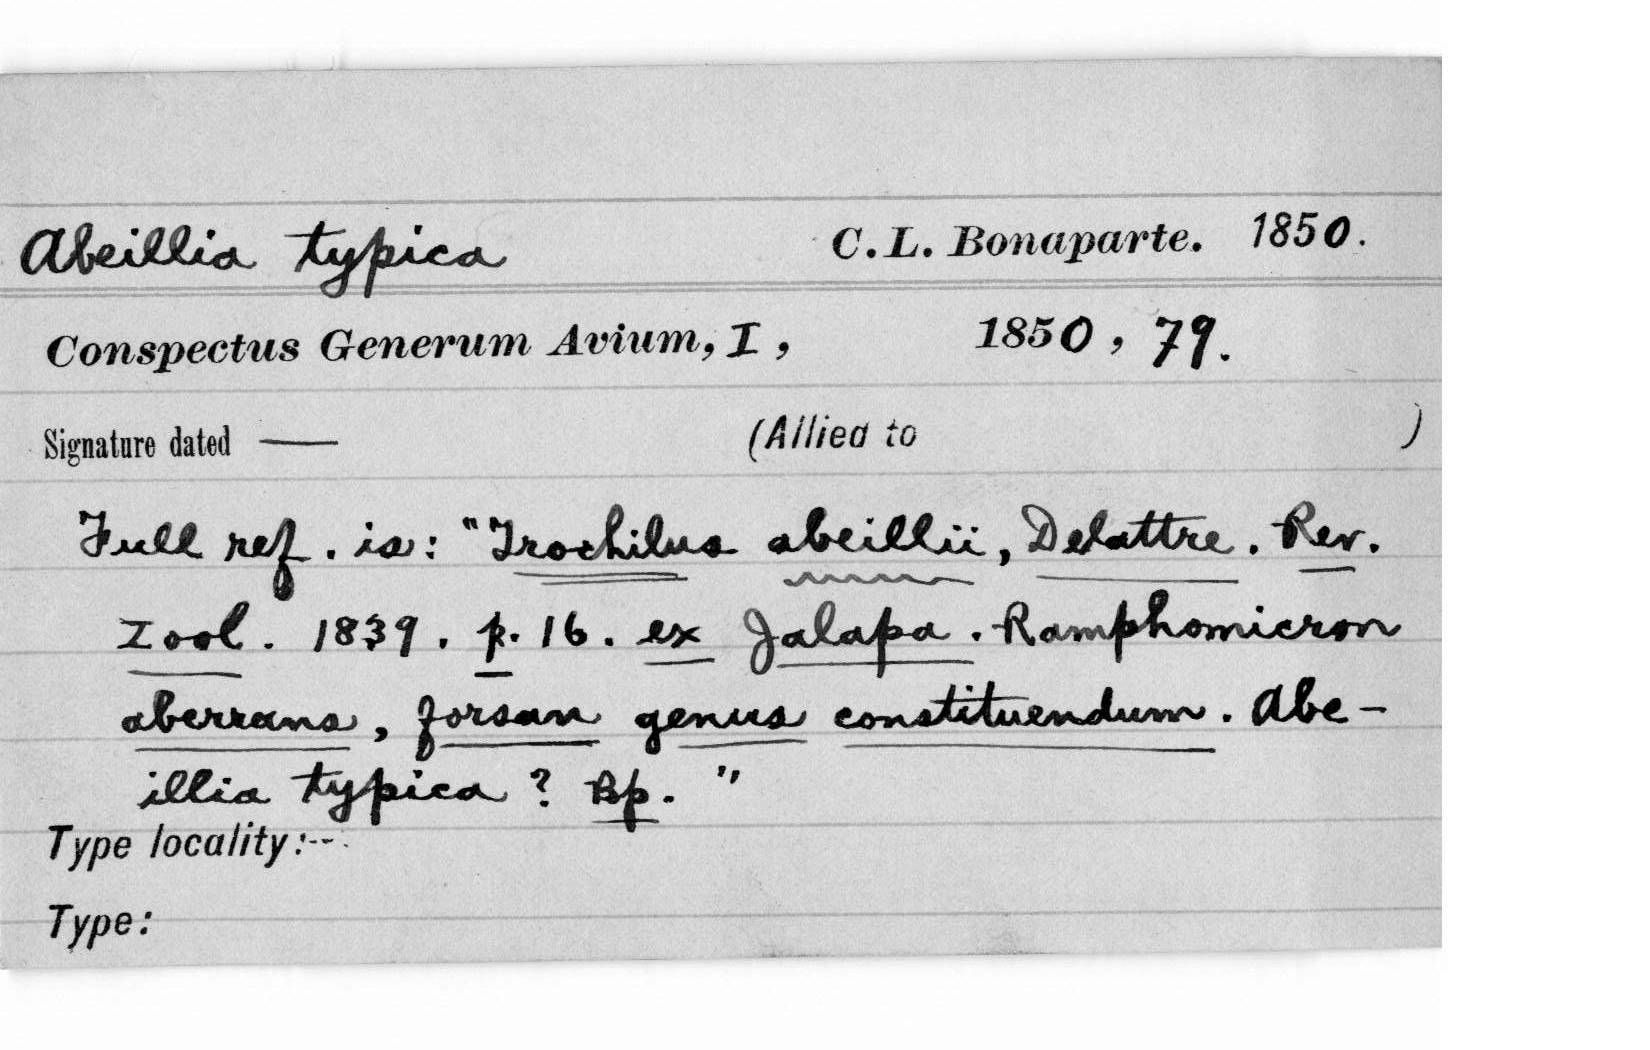 Abeillia typica C. L. Bonaparte. 1850.
Conspectus Generum Avium, I, 1850, 79.
Signature dated — (Allied to )
Full ref. is: "Trochilus abeillii, Delattre. Rev.
Zool. 1839. p. 16. ex Jalapa. Ramphomicron
aberrans, forsan genus constituendum. Abe-
illia typica? Bp."
Type locality:--
Type: